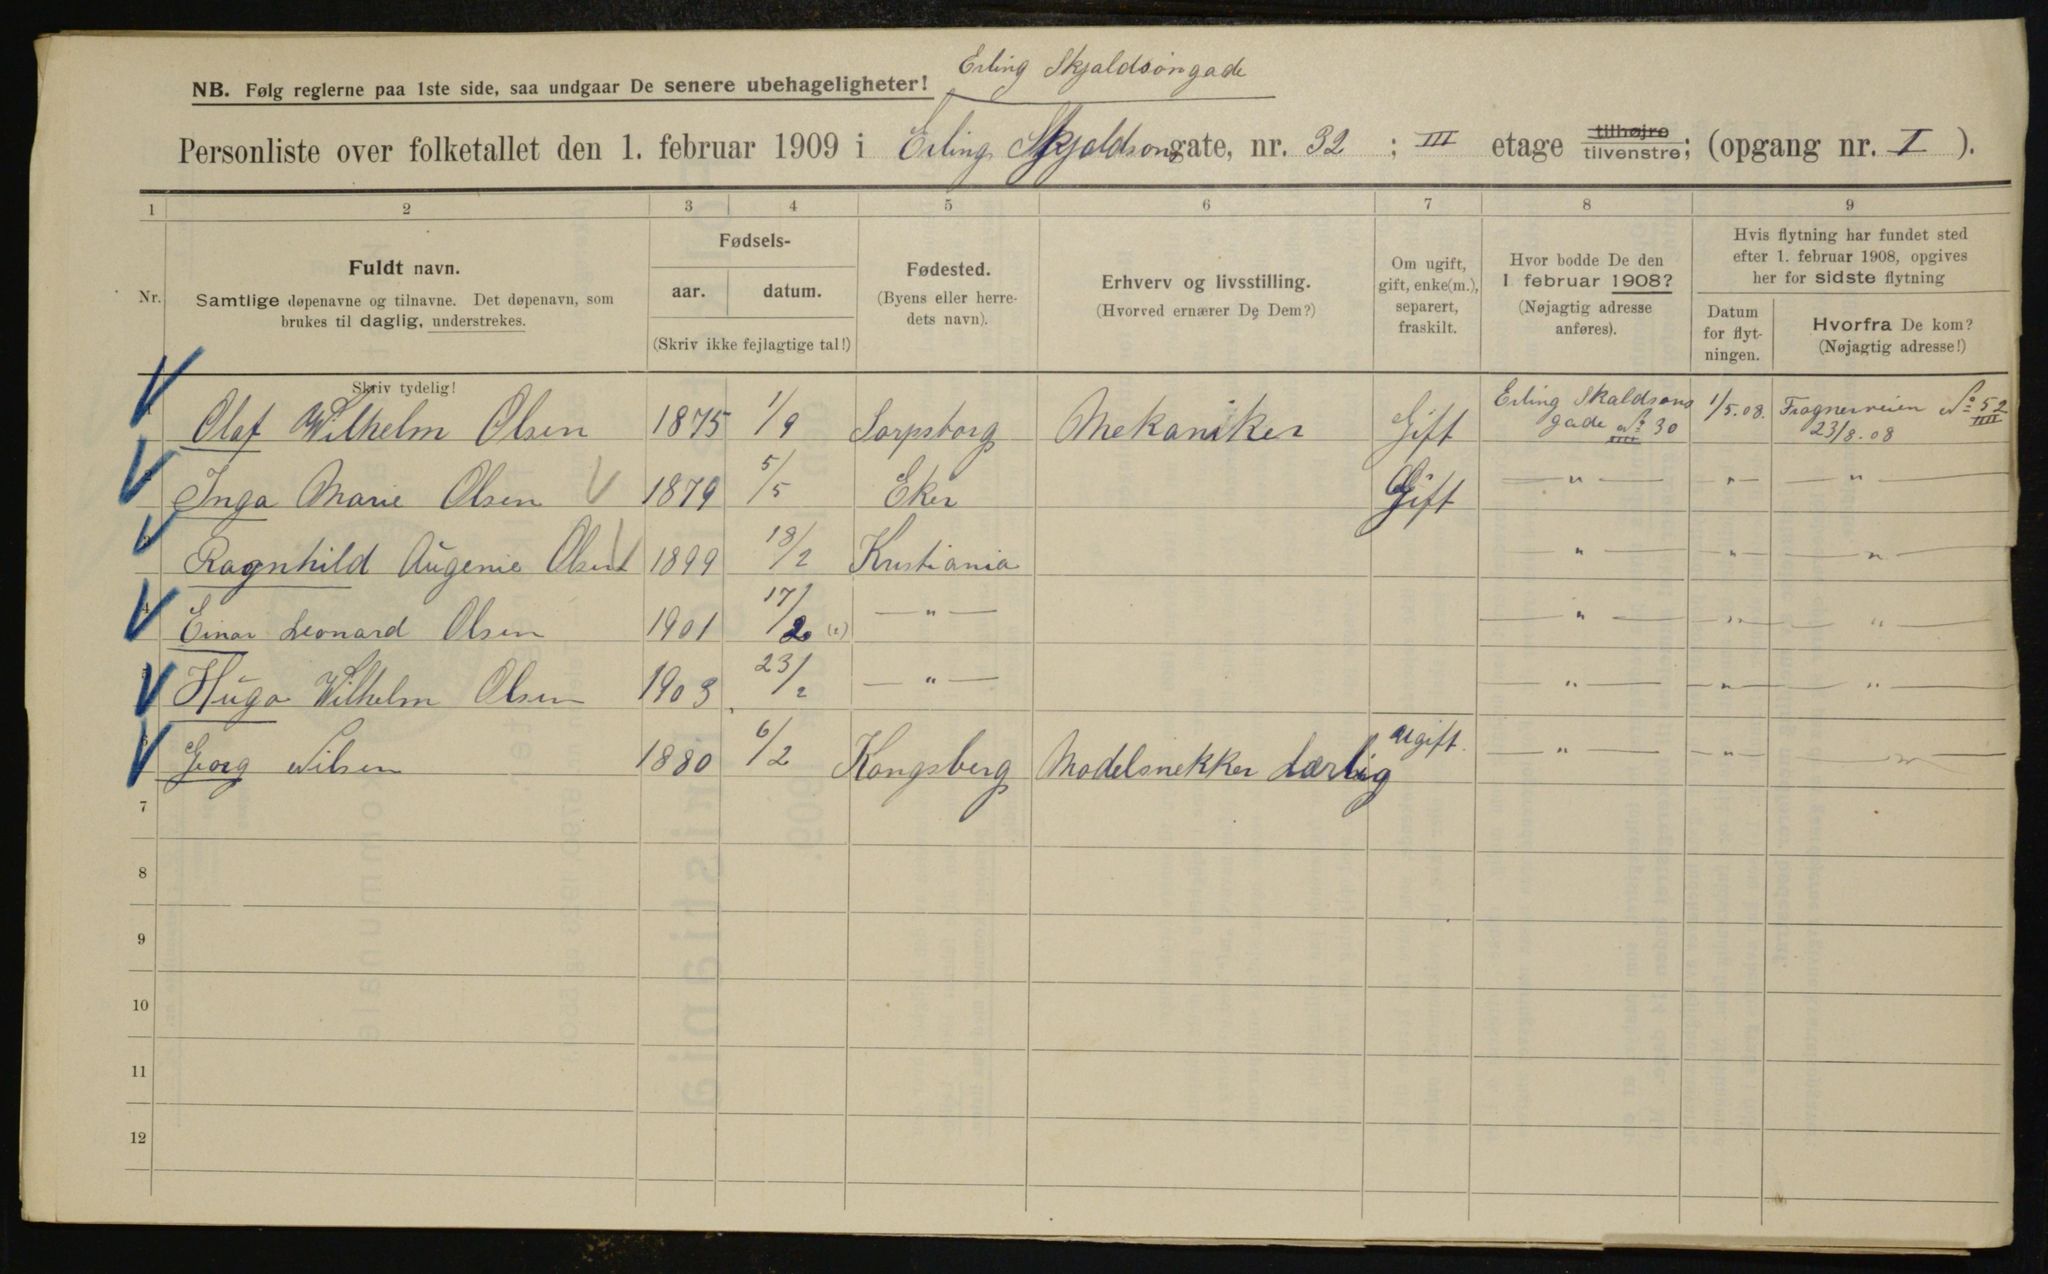 Erling Skjaldsøngade
NB. Følg reglerne paa 1ste side, saa undgaar De senere ubehageligheter!
Personliste over folketallet den 1. februar 1909 i Erling Skjaldsøngate, nr. 32 ; III etage tilhøjre tilvenstre; (opgang nr. I ).
1 2 3 4 5 6 7 8 9
Nr.
Fuldt navn.
Samtlige døpenavne og tilnavne. Det døpenavn, som
brukes til daglig, understrekes.
Skriv tydelig!
Fødsels-
aar. datum.
(Skriv ikke fejlagtige tal!)
Fødested.
(Byens eller herre-
dets navn).
Erhverv og livsstilling.
(Hvorved ernærer De Dem?)
Om ugift,
gift, enke(m.),
separert,
fraskilt.
Hvor bodde De den
1 februar 1908?
(Nøjagtig adresse
anføres).
Hvis flytning har fundet sted
efter 1. februar 1908, opgives
her for sidste flytning
Datum
for flyt-
ningen.
Hvorfra De kom?
(Nøjagtig adresse!)
1 Olaf Wilhelm Olsen 1875 1/9 Sarpsborg Mekaniker Gift Erling Skaldsøns gade No 30 IIII 1/5.08. Frognerveien No 52 IIII 23/8.08
2 Inga Marie Olsen 1879 5/5 Eker Gift — " — " — " —
3 Ragnhild Augenie Olsen 1899 18/2 Kristiania — " — — " — — " —
4 Einar Leonard Olsen 1901 17/2 (2) — " — — " — — " — — " —
5 Hugo Wilhelm Olsen 1903 23/2 — " — — " — — " — — " —
6 Georg Nilsen 1880 6/2 Kongsberg Modelsnekker Lærlig ugift. — " — — " — — " —
7
8
9
10
11
12